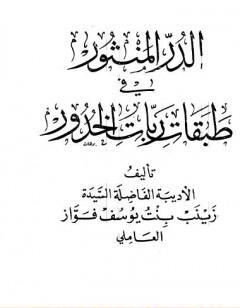 الدر المنثور
في
طبقات ربات الخدور
تأليف
الأديبة الفاضلة السيدة
زينب بنت يوسف فواز
العاملي